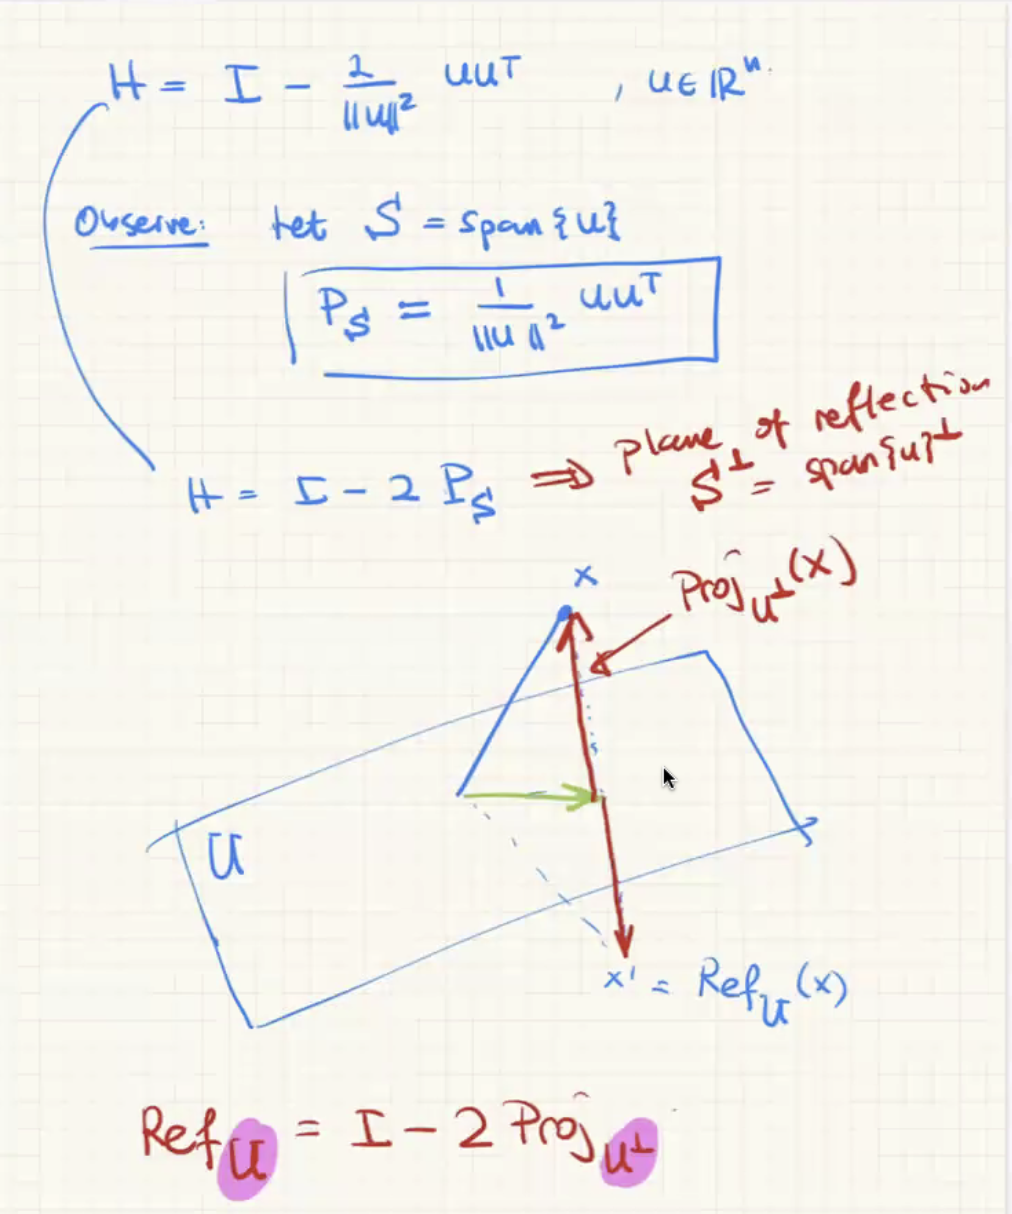 H = I - 2/||u||² uuᵀ , u ∈ ℝⁿ.
Observe: Let S = span{u}
P_S = 1/||u||² uuᵀ
H = I - 2 P_S ⇒ plane of reflection
S^⊥ = span{u}^⊥
x
Proj_U^⊥(x)
U
x' = Ref_U(x)
Ref_U = I - 2 Proj_U^⊥